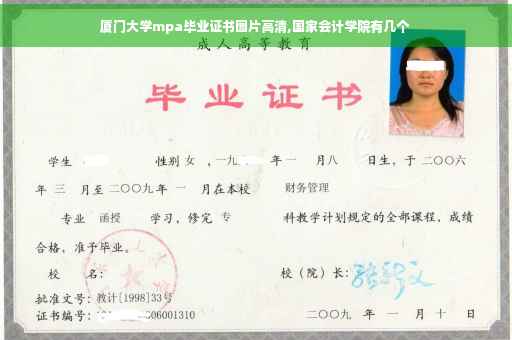 厦门大学mpa毕业证书图片高清,国家会计学院有几个
成人高等教育
毕业证书
学生 性别 女 ，一九 年 一 月 八 日生，于 二〇〇六
年 三 月至 二〇〇九 年 一 月在本校 财务管理
专业 函授 学习，修完 专 科教学计划规定的全部课程，成绩
合格，准予毕业。
校 名： 校（院）长：
批准文号：教计[1998]33号
证书编号： 06001310 二〇〇九 年 一 月 十 日